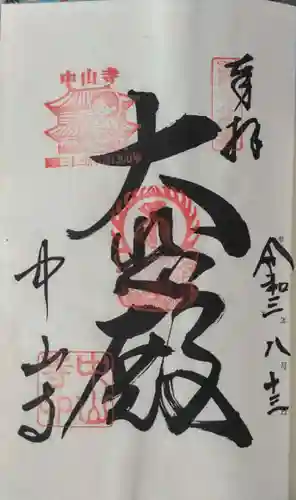 奉拝
令和三年八月十三日
大悲殿
中山寺
中山寺
中山寺印